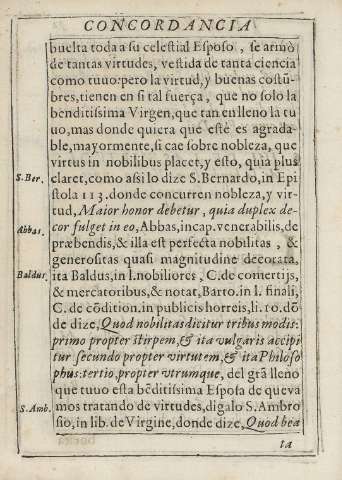 CONCORDANCIA
buelta toda a su celestial Esposo, se armò
de tantas virtudes, vestida de tanta ciencia
como tuuo: pero la virtud, y buenas costū-
bres, tienen en si tal fuerça, que no solo la
benditissima Virgen, que tan enlleno la tu
uo, mas donde quiera que estè es agrada-
ble, mayormente, si cae sobre nobleza, que
virtus in nobilibus placet, y esto, quia plus
S. Ber.
claret, como assi lo dize S. Bernardo, in Epi
stola 113. donde concurren nobleza, y vir-
tud, Maior honor debetur, quia duplex de-
cor fulget in eo, Abbas, in cap. venerabilis, de
Abbas.
præbendis, & illa est perfecta nobilitas, &
generositas quasi magnitudine decorata,
Baldus.
ita Baldus, in l. nobiliores, C. de comertijs,
& mercatoribus, & notat, Barto. in l. finali,
C. de cōdition. in publicis horreis, li. 10. dō
de dize, Quod nobilitas dicitur tribus modis:
primo propter stirpem, & ita vulgaris accipi
tur secundo propter virtutem, & ita Philoso
phus: tertio, propter vtrumque, del grā lleno
que tuuo esta bēditissima Esposa de queva
S. Amb.
mos tratando de virtudes, digalo S. Ambro
sio, in lib. de Virgine, donde dize, Quod bea
ta